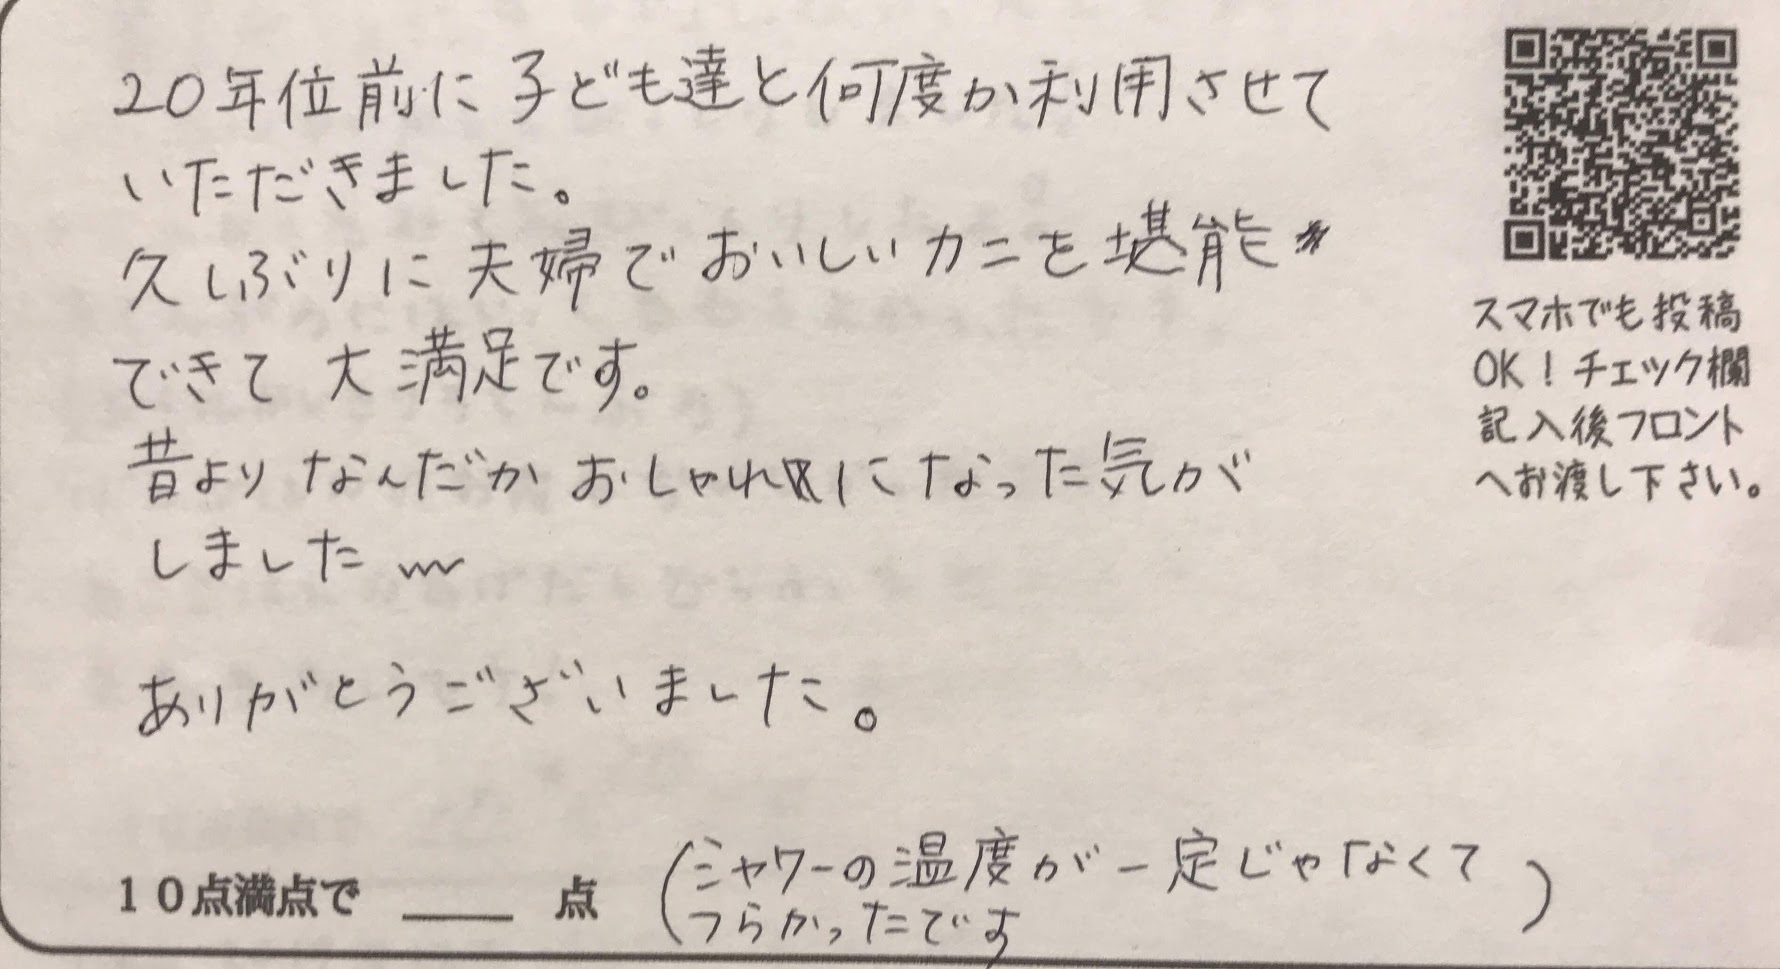 20年位前に子ども達と何度か利用させて
いただきました。
久しぶりに夫婦でおいしいカニを堪能
できて大満足です。
昔よりなんだかおしゃれになった気が
しました
ありがとうございました。
スマホでも投稿
OK！チェック欄
記入後フロント
へお渡し下さい。
10点満点で ____ 点
(シャワーの温度が一定じゃなくて
つらかったです)